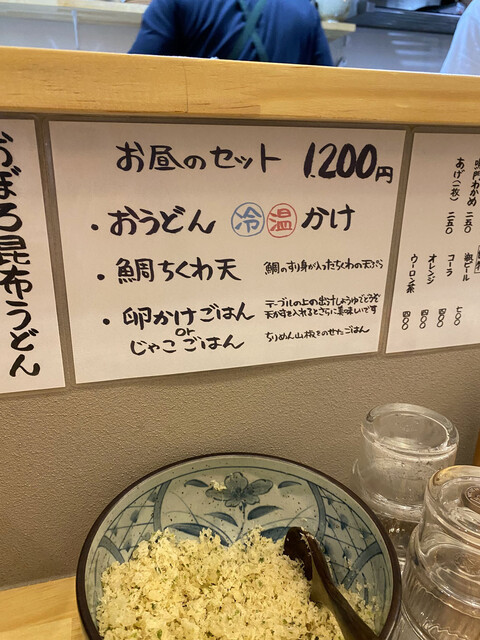 おぼろ昆布うどん
お昼のセット 1.200円
・おうどん 冷 温 かけ
・鯛ちくわ天 鯛のすり身が入ったちくわの天ぷら
・卵かけごはん テーブルの上の出汁しょうゆでどうぞ
天かすを入れるとさらに美味しいです
or
じゃこごはん ちりめん山椒をのせたごはん
鳴門わかめ 二五〇
あげ(一枚) 二五〇
瓶ビール 七〇〇
コーラ 四〇〇
オレンジ 四〇〇
ウーロン茶 四〇〇